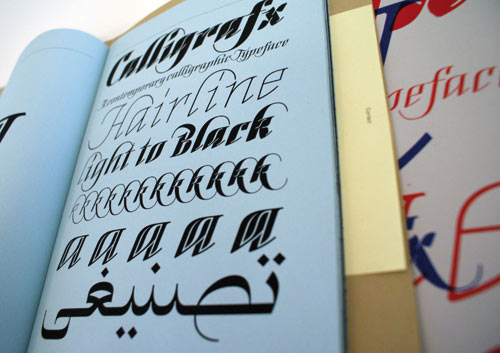 Calligrafx
A contemporary calligraphic Typeface
Hairline
Light to Black
kkkkkkkkkkk
a a a a a
تصنيفى
Contact